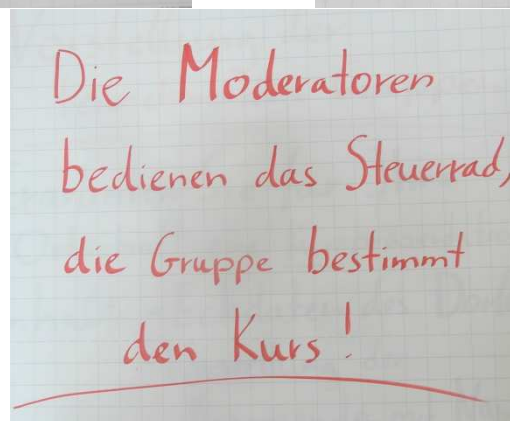 Die Moderatoren
bedienen das Steuerrad,
die Gruppe bestimmt
den Kurs!